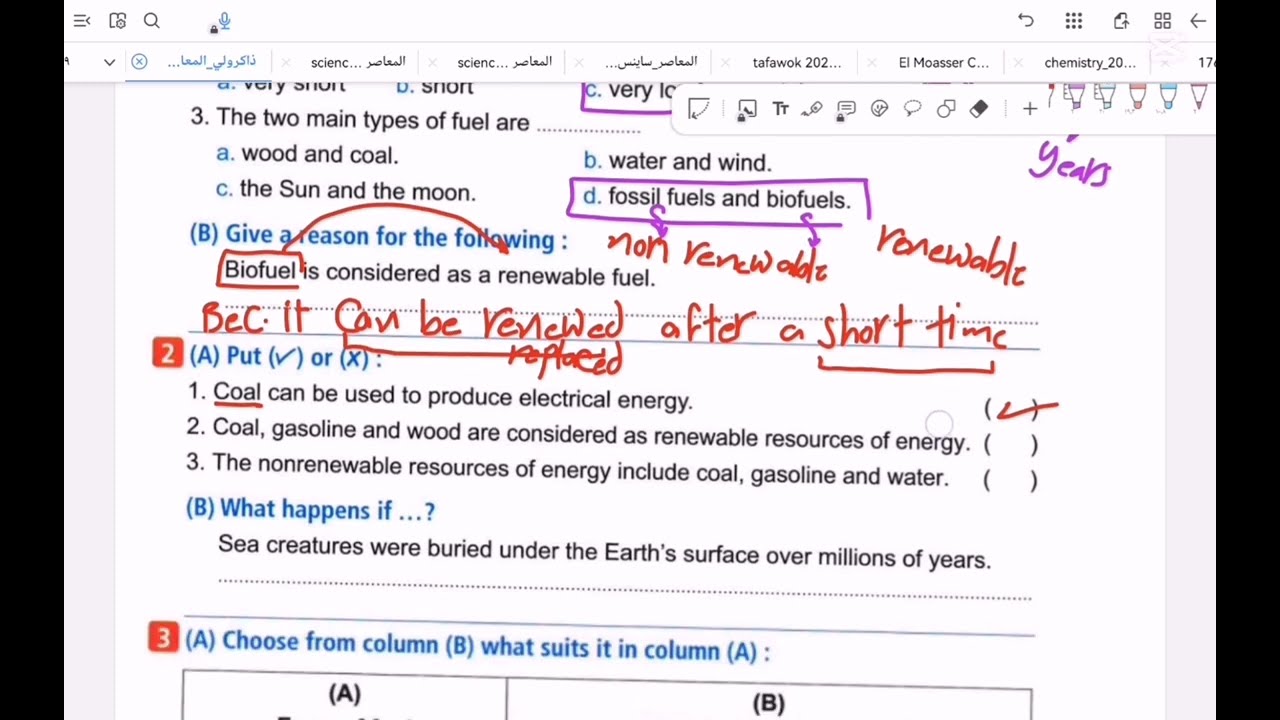 ذاكرولي_المعا...
scienc... المعاصر
scienc... المعاصر
المعاصر_ساينس...
tafawok 202...
El Moasser C...
chemistry_20...
a. very short b. short c. very lo
3. The two main types of fuel are ....................
years
a. wood and coal. b. water and wind.
c. the Sun and the moon. d. fossil fuels and biofuels.
(B) Give a reason for the following :
non renewable renewable
Biofuel is considered as a renewable fuel.
Bec. it can be renewed after a short time
replaced
2 (A) Put (✓) or (x) :
1. Coal can be used to produce electrical energy. (✓)
2. Coal, gasoline and wood are considered as renewable resources of energy. ( )
3. The nonrenewable resources of energy include coal, gasoline and water. ( )
(B) What happens if ...?
Sea creatures were buried under the Earth's surface over millions of years.
3 (A) Choose from column (B) what suits it in column (A) :
(A) (B)